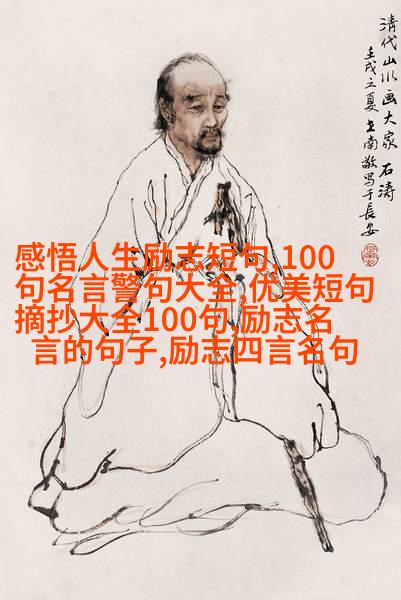 清代山水画大家 石涛
壬戌之夏 王南敬写于長安
感悟人生励志短句,100
句名言警句大全,优美短句
摘抄大全100句,励志名
言的句子,励志四言名句